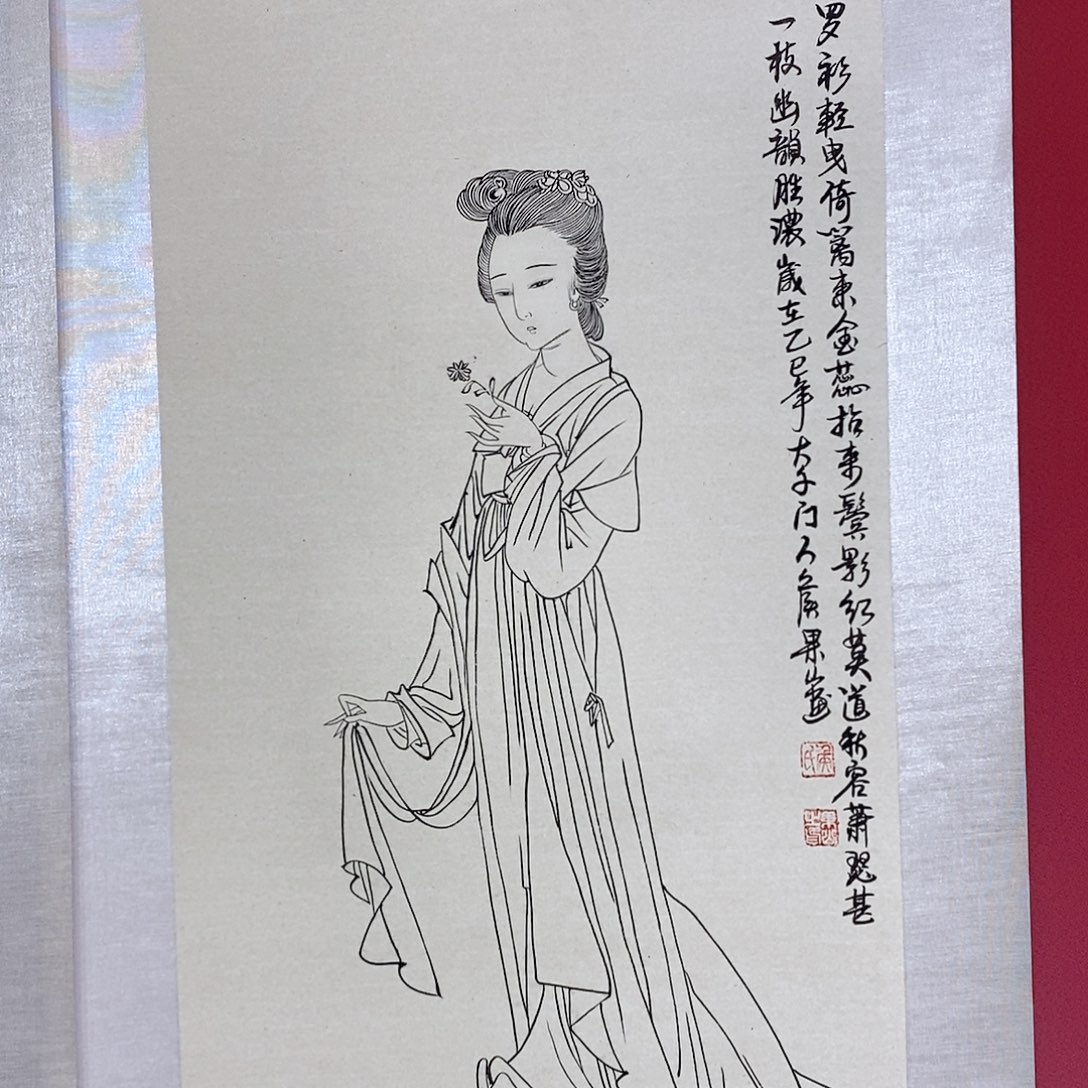 罗衫轻曳倚篱东金蕊拈来鬓影红莫道秋容萧瑟甚
一枝幽韻胜濃歲在乙巳年大千门人侯果山畫
侯氏